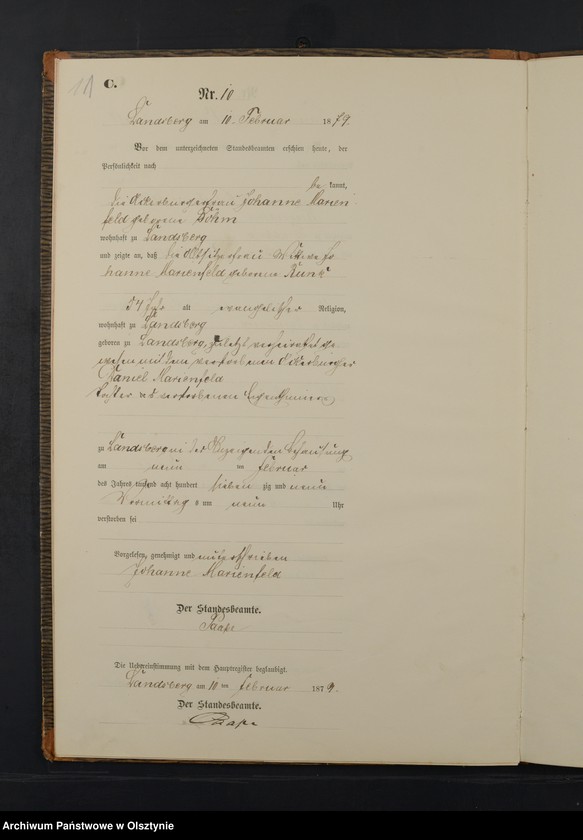 11
C.
Nr. 10
Landsberg am 10. Februar 1879.
Vor dem unterzeichneten Standesbeamten erschien heute, der
Persönlichkeit nach
be kannt,
die Ackerbürgerfrau Johanne Marien
feld geborene Böhm
wohnhaft zu Landsberg
und zeigte an, daß die Altsitzerfrau Wittwe Jo
hanne Marienfeld geborene Runk
84 Jahr alt evangelischer Religion,
wohnhaft zu Landsberg
geboren zu Landsberg, zuletzt verheirathet ge
wesen mit dem verstorbenen Ackerbürger
Daniel Marienfeld
Tochter des verstorbenen
zu Landsberg in der Behausung
am neun ten Februar
des Jahres tausend acht hundert sieben zig und neun
Vormittag s um neun Uhr
verstorben sei
Vorgelesen, genehmigt und unterschrieben
Johanne Marienfeld
Der Standesbeamte.
Die Uebereinstimmung mit dem Hauptregister beglaubigt.
Landsberg am 10 ten Februar 1879.
Der Standesbeamte.
Archiwum Państwowe w Olsztynie